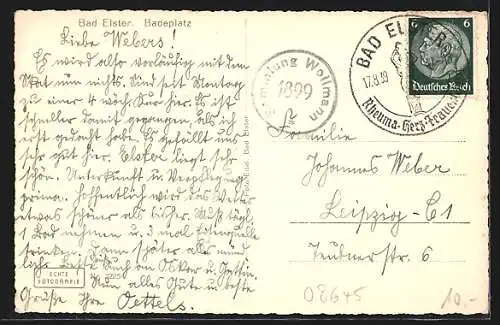 Bad Elster. Badeplatz
Liebe Webers!
Es wird also vorläufig mit dem
Skat nun nichts. Sind seit Montag
zu einer 4 woch. Kur hier. Es ist
schneller damit gegangen, als ich
erst gedacht habe. Es gefällt uns
sehr gut hier. Elster liegt sehr
schön. Unterkunft u. Verpflegung
prima. Hoffentlich wird das Wetter
etwas schöner als bisher. Muß tägl.
1 Bad nehmen u. 3 mal
trinken. Dann später alles
Nun alles Gute u. beste
Grüße Ihre Oettels.
ECHTE
FOTOGRAFIE
Sammlung Wollmann
1899
BAD ELSTER
17.8.39
Rheuma-Herz-Frauen
6 6
Deutsches Reich
Familie
Johannes Weber
Leipzig-C1
Täubnerstr. 6
08645
10.-